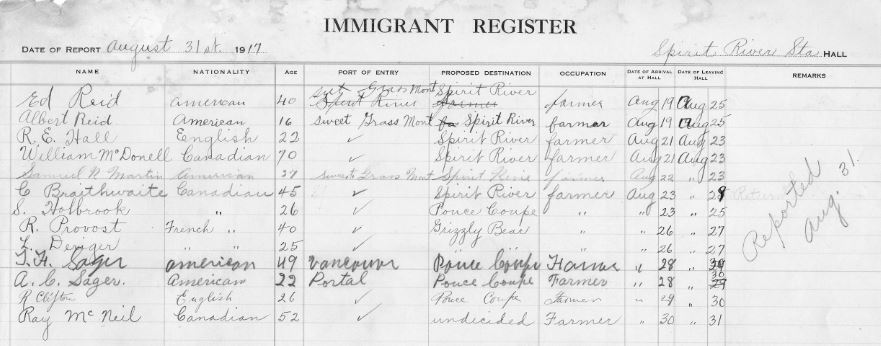 IMMIGRANT REGISTER
DATE OF REPORT August 31st. 1917 Spirit River Sta HALL
NAME NATIONALITY AGE PORT OF ENTRY PROPOSED DESTINATION OCCUPATION DATE OF ARRIVAL AT HALL DATE OF LEAVING HALL REMARKS
Ed Reid American 40 Sweet Grass Mont Spirit River Spirit River farmer Aug 19 Aug 25
Albert Reid American 16 Sweet Grass Mont Spirit River farmer Aug 19 Aug 25
R. E. Hall English 22 ✓ Spirit River farmer Aug 21 Aug 23
William McDonell Canadian 70 ✓ Spirit River farmer Aug 21 Aug 23
Samuel N Martin American 37 Sweet Grass Mont Spirit River farmer Aug 22 " 23
C Braithwaite Canadian 45 ✓ Spirit River farmer Aug 23 "
S. Holbrook " 26 ✓ Pouce Coupe " " 23 " 25
R. Provost French " 40 ✓ Grizzly Bear " " 26 " 27
L. " " 25 ✓ " " " 26 " 27
T. H. Sager American 49 Vancouver Pouce Coupe Farmer " 28 " 30
A. C. Sager. American 22 Portal Pouce Coupe Farmer " 28 " 29
R Clifton English 26 ✓ Pouce Coupe Farmer " 29 " 30
Ray McNeil Canadian 52 ✓ undecided Farmer " 30 " 31
Reported
Aug. 31.